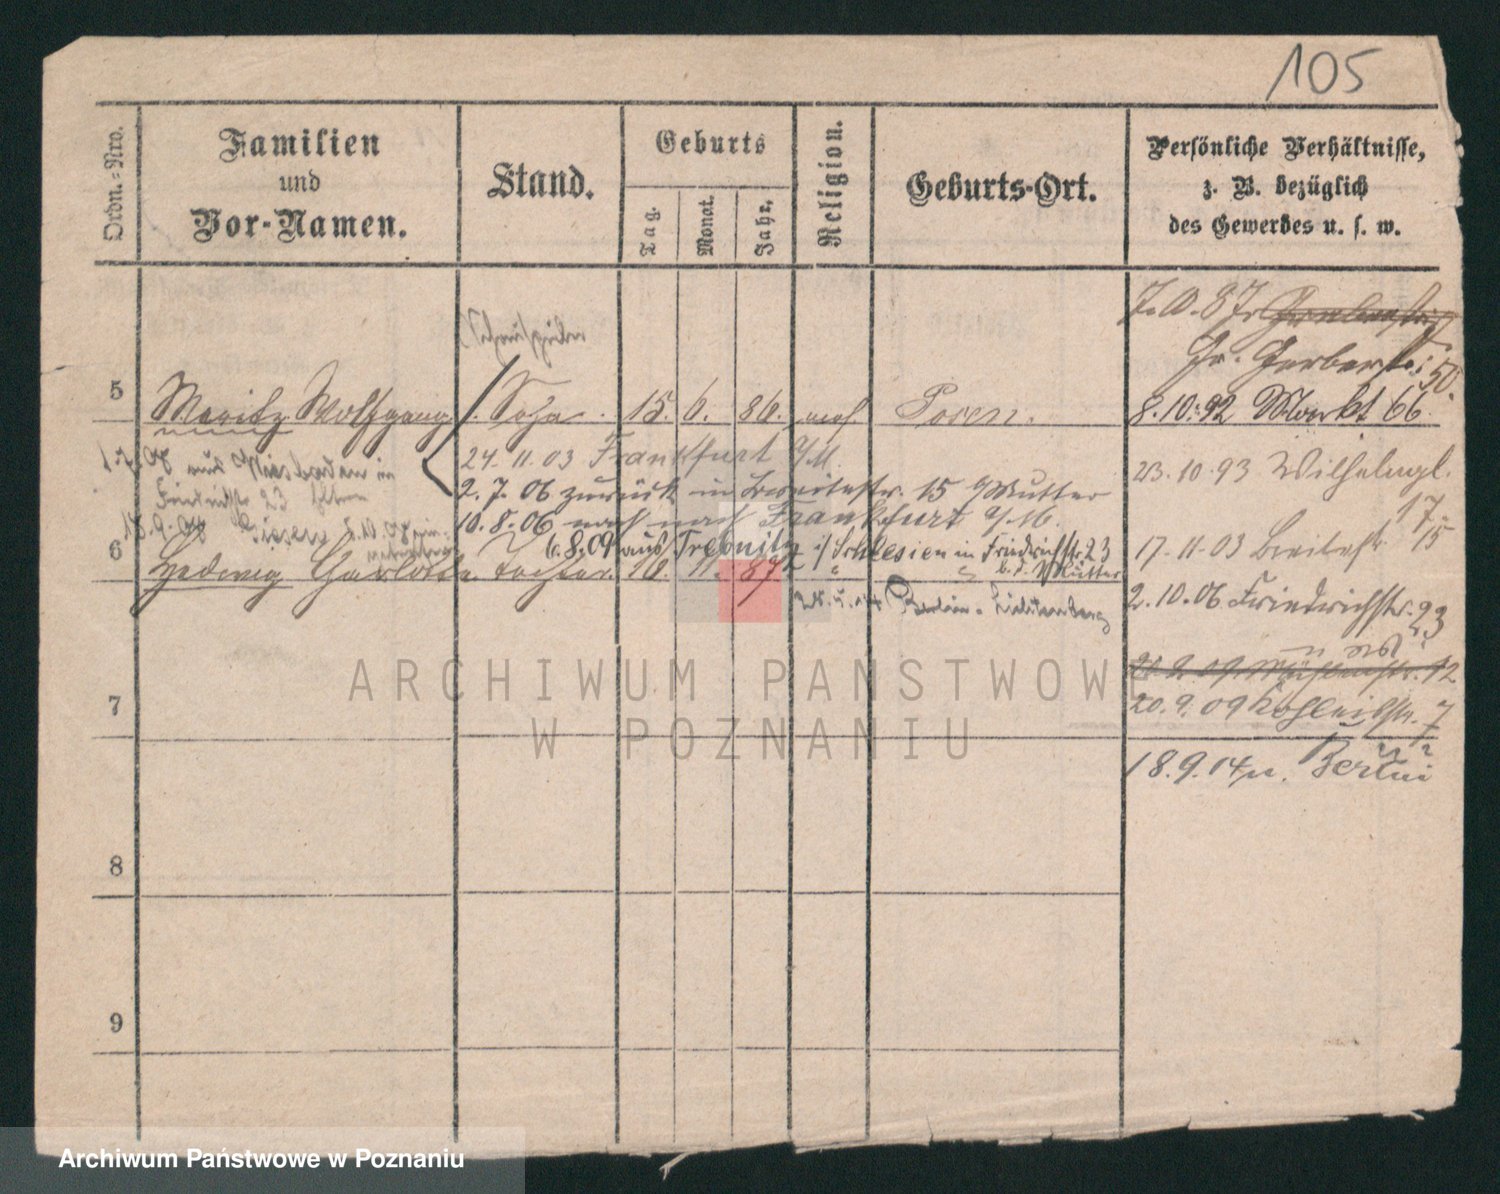 105
Ordn.-Nro.
Familien
und
Vor-Namen.
Stand.
Geburts
Tag.
Monat.
Jahr.
Religion.
Geburts-Ort.
Persönliche Verhältnisse,
z. B. bezüglich
des Gewerbes u. s. w.
Gr. Gerberstr. 50.
5 Moritz Wolfgang Sohn. 15. 6. 86. mos. Posen. 8.10.92 Markt 66.
24.11.03 Frankfurt a/M.
23.10.93 Wilhelmpl. 17.
aus Wiesbaden in
2.7.06 zurück in Breitestr. 15 Mutter
Friedrichstr. 23
10.8.06 nach Frankfurt a/M.
17.11.03 Breitestr. 15
6.8.09 aus Trebnitz i/Schlesien in Friedrichstr. 23
b. d. Mutter
6 Hedwig Charlotte Tochter. 16. 11. 87
Berlin-Lichtenberg
2.10.06 Friedrichstr. 23
7
20.9.09 Kohleisstr. 7
18.9.14 n. Berlin
8
9
ARCHIWUM PAŃSTWOWE
W POZNANIU
Archiwum Państwowe w Poznaniu